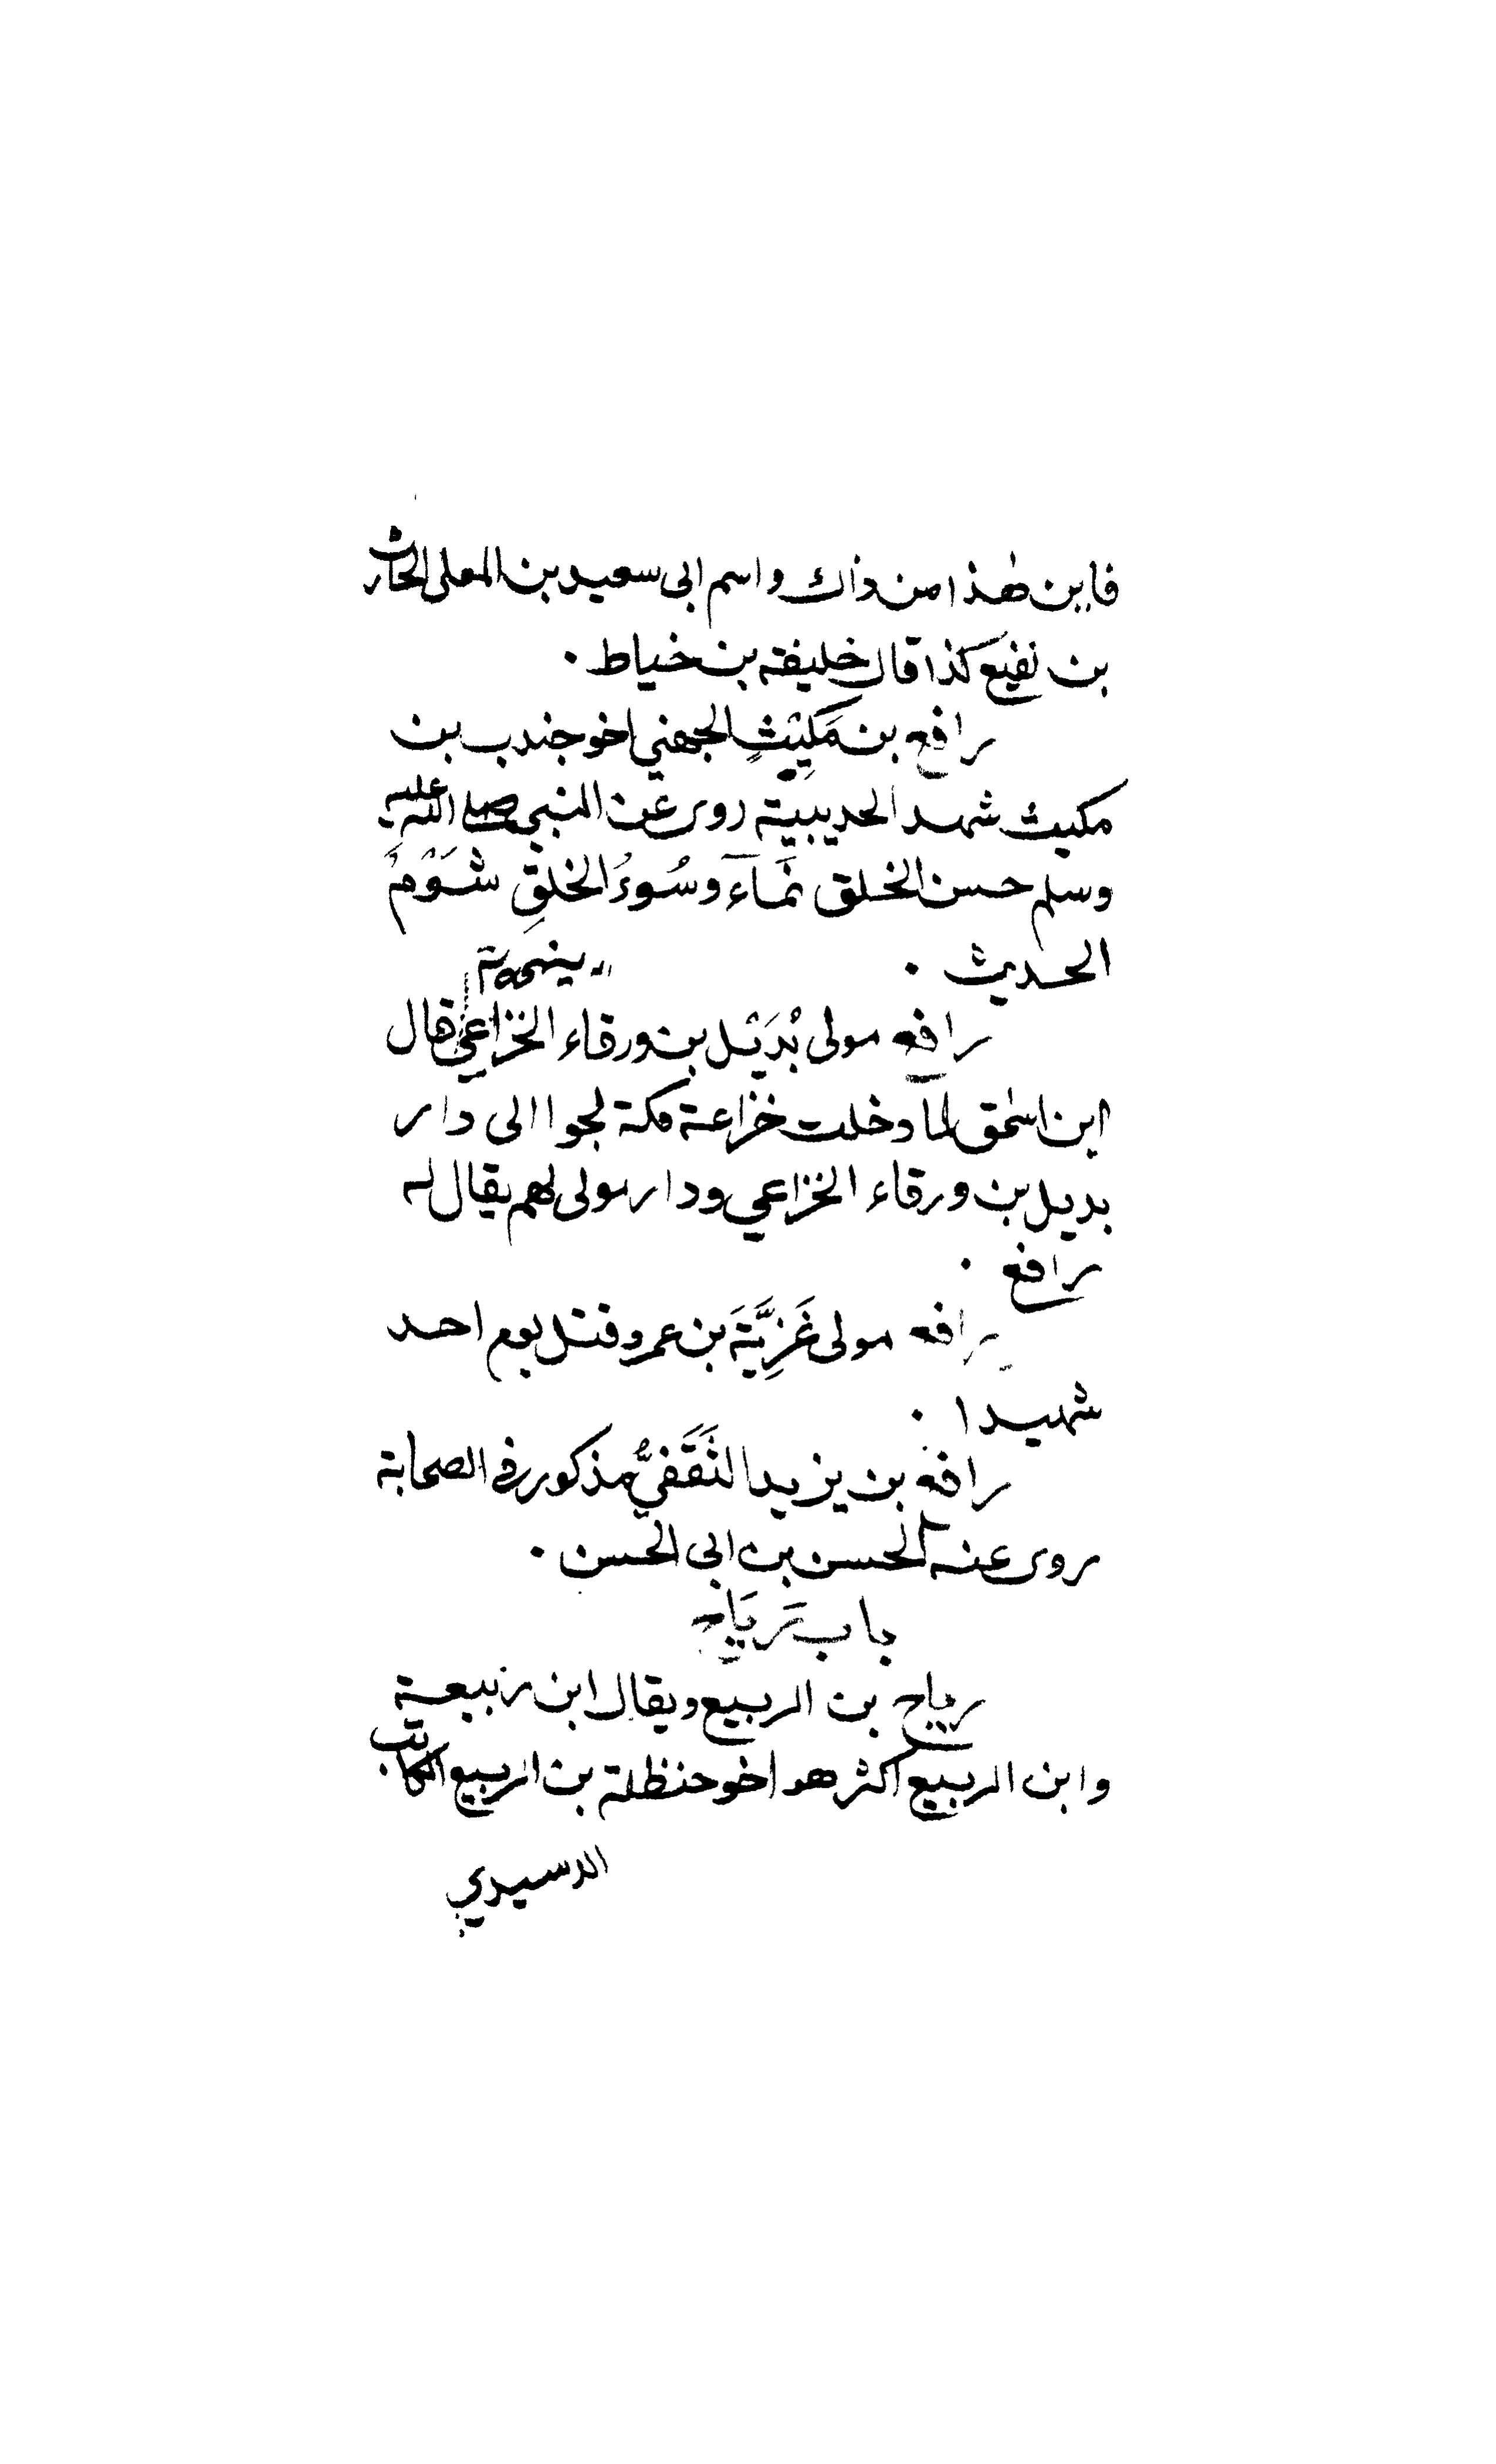 فاين هذا من ذاك واسم ابى سعيد بن المعلى الحارث
بن نفيع كذا قال خليفة بن خياط .
رافع بن مَكِيْثٍ الجهني اخو جندب بن
مكيث شهد الحديبية روى عن النبي صلى الله عليه
وسلم حسن الخلق نَمَآء وسُوءُ الخلقِ شَوْمٌ
الحديث .
رافع مولى بُدَيْل بن ورقاء الخزاعي قال
ابن اسحق لما دخلت خزاعة مكة لجوا الى دار
بديل بن ورقاء الخزاعي ودار مولى لهم يقال له
رافع .
رافع مولى غَزِيَّةَ بن عمرو قتل يوم احد
شهيدا .
رافع بن يزيد الثَّقَفيُّ مذكور فى الصحابة
روى عنه الحسن بن ابى الحسن .
باب رَيَاح
رياح بن الربيع ويقال ابن ربيعة
وابن الربيع اكثر هو اخو حنظلة بن الربيع الكاتب
الاسيدي